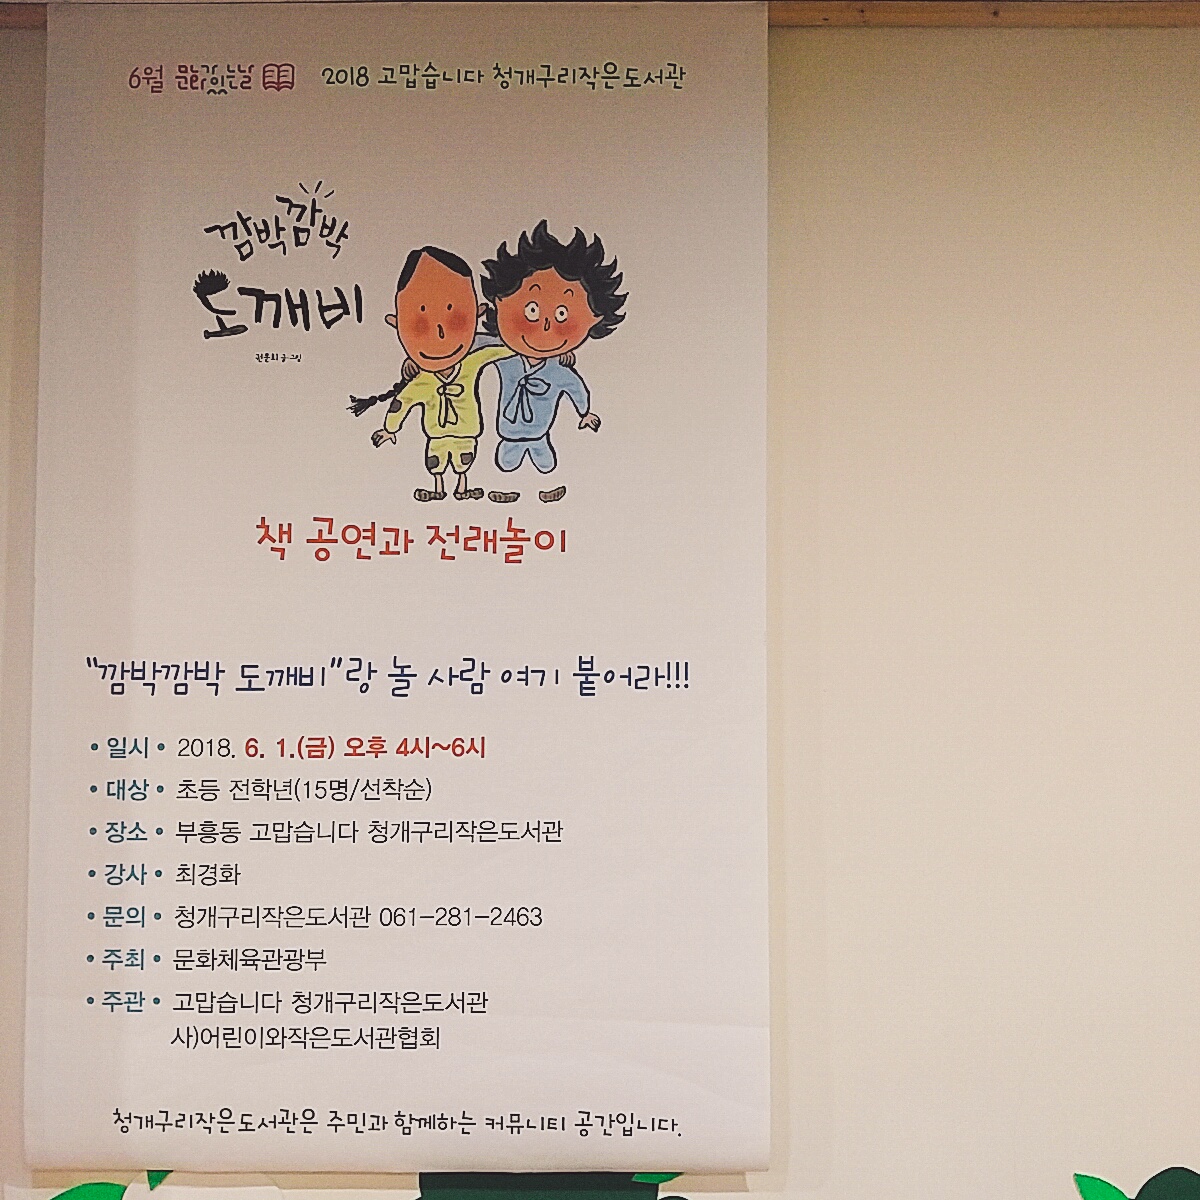 6월 문화가있는날 2018 고맙습니다 청개구리작은도서관
깜박깜박
도깨비
권문희 글·그림
책 공연과 전래놀이
"깜박깜박 도깨비"랑 놀 사람 여기 붙어라!!!
• 일시 • 2018. 6. 1.(금) 오후 4시~6시
• 대상 • 초등 전학년(15명/선착순)
• 장소 • 부흥동 고맙습니다 청개구리작은도서관
• 강사 • 최경화
• 문의 • 청개구리작은도서관 061-281-2463
• 주최 • 문화체육관광부
• 주관 • 고맙습니다 청개구리작은도서관
사)어린이와작은도서관협회
청개구리작은도서관은 주민과 함께하는 커뮤니티 공간입니다.